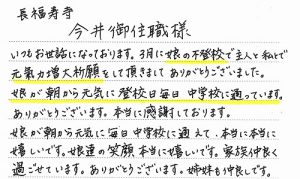 長福寿寺
今井御住職様
いつもお世話になっております。3月に娘の不登校で主人と私とで
元気力増大祈願をして頂きまして ありがとうございました。
娘が朝から元気に登校日毎日 中学校に通っています。
ありがとうございます。本当に感謝しております。
娘が朝から元気に毎日 中学校に通えて、本当に本当に
嬉しいです。娘達の笑顔 本当に嬉しいです。家族仲良く
過ごせています。ありがとうございます。姉妹も仲良しです。